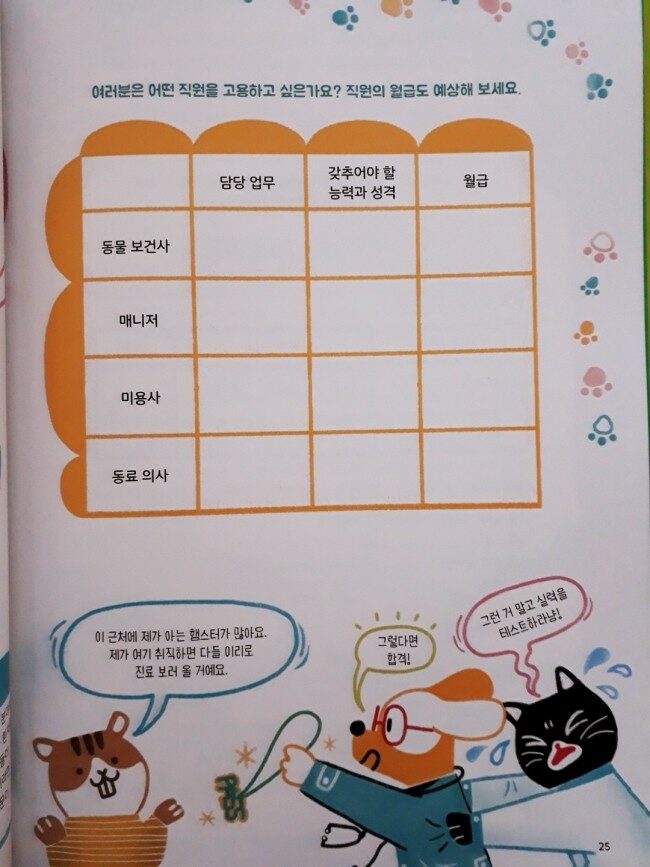 여러분은 어떤 직원을 고용하고 싶은가요? 직원의 월급도 예상해 보세요.
담당 업무
갖추어야 할
능력과 성격
월급
동물 보건사
매니저
미용사
동료 의사
이 근처에 제가 아는 햄스터가 많아요.
제가 여기 취직하면 다들 이리로
진료 보러 올 거예요.
그렇다면
합격!
그런 거 말고 실력을
테스트하라냥!
PASS
25